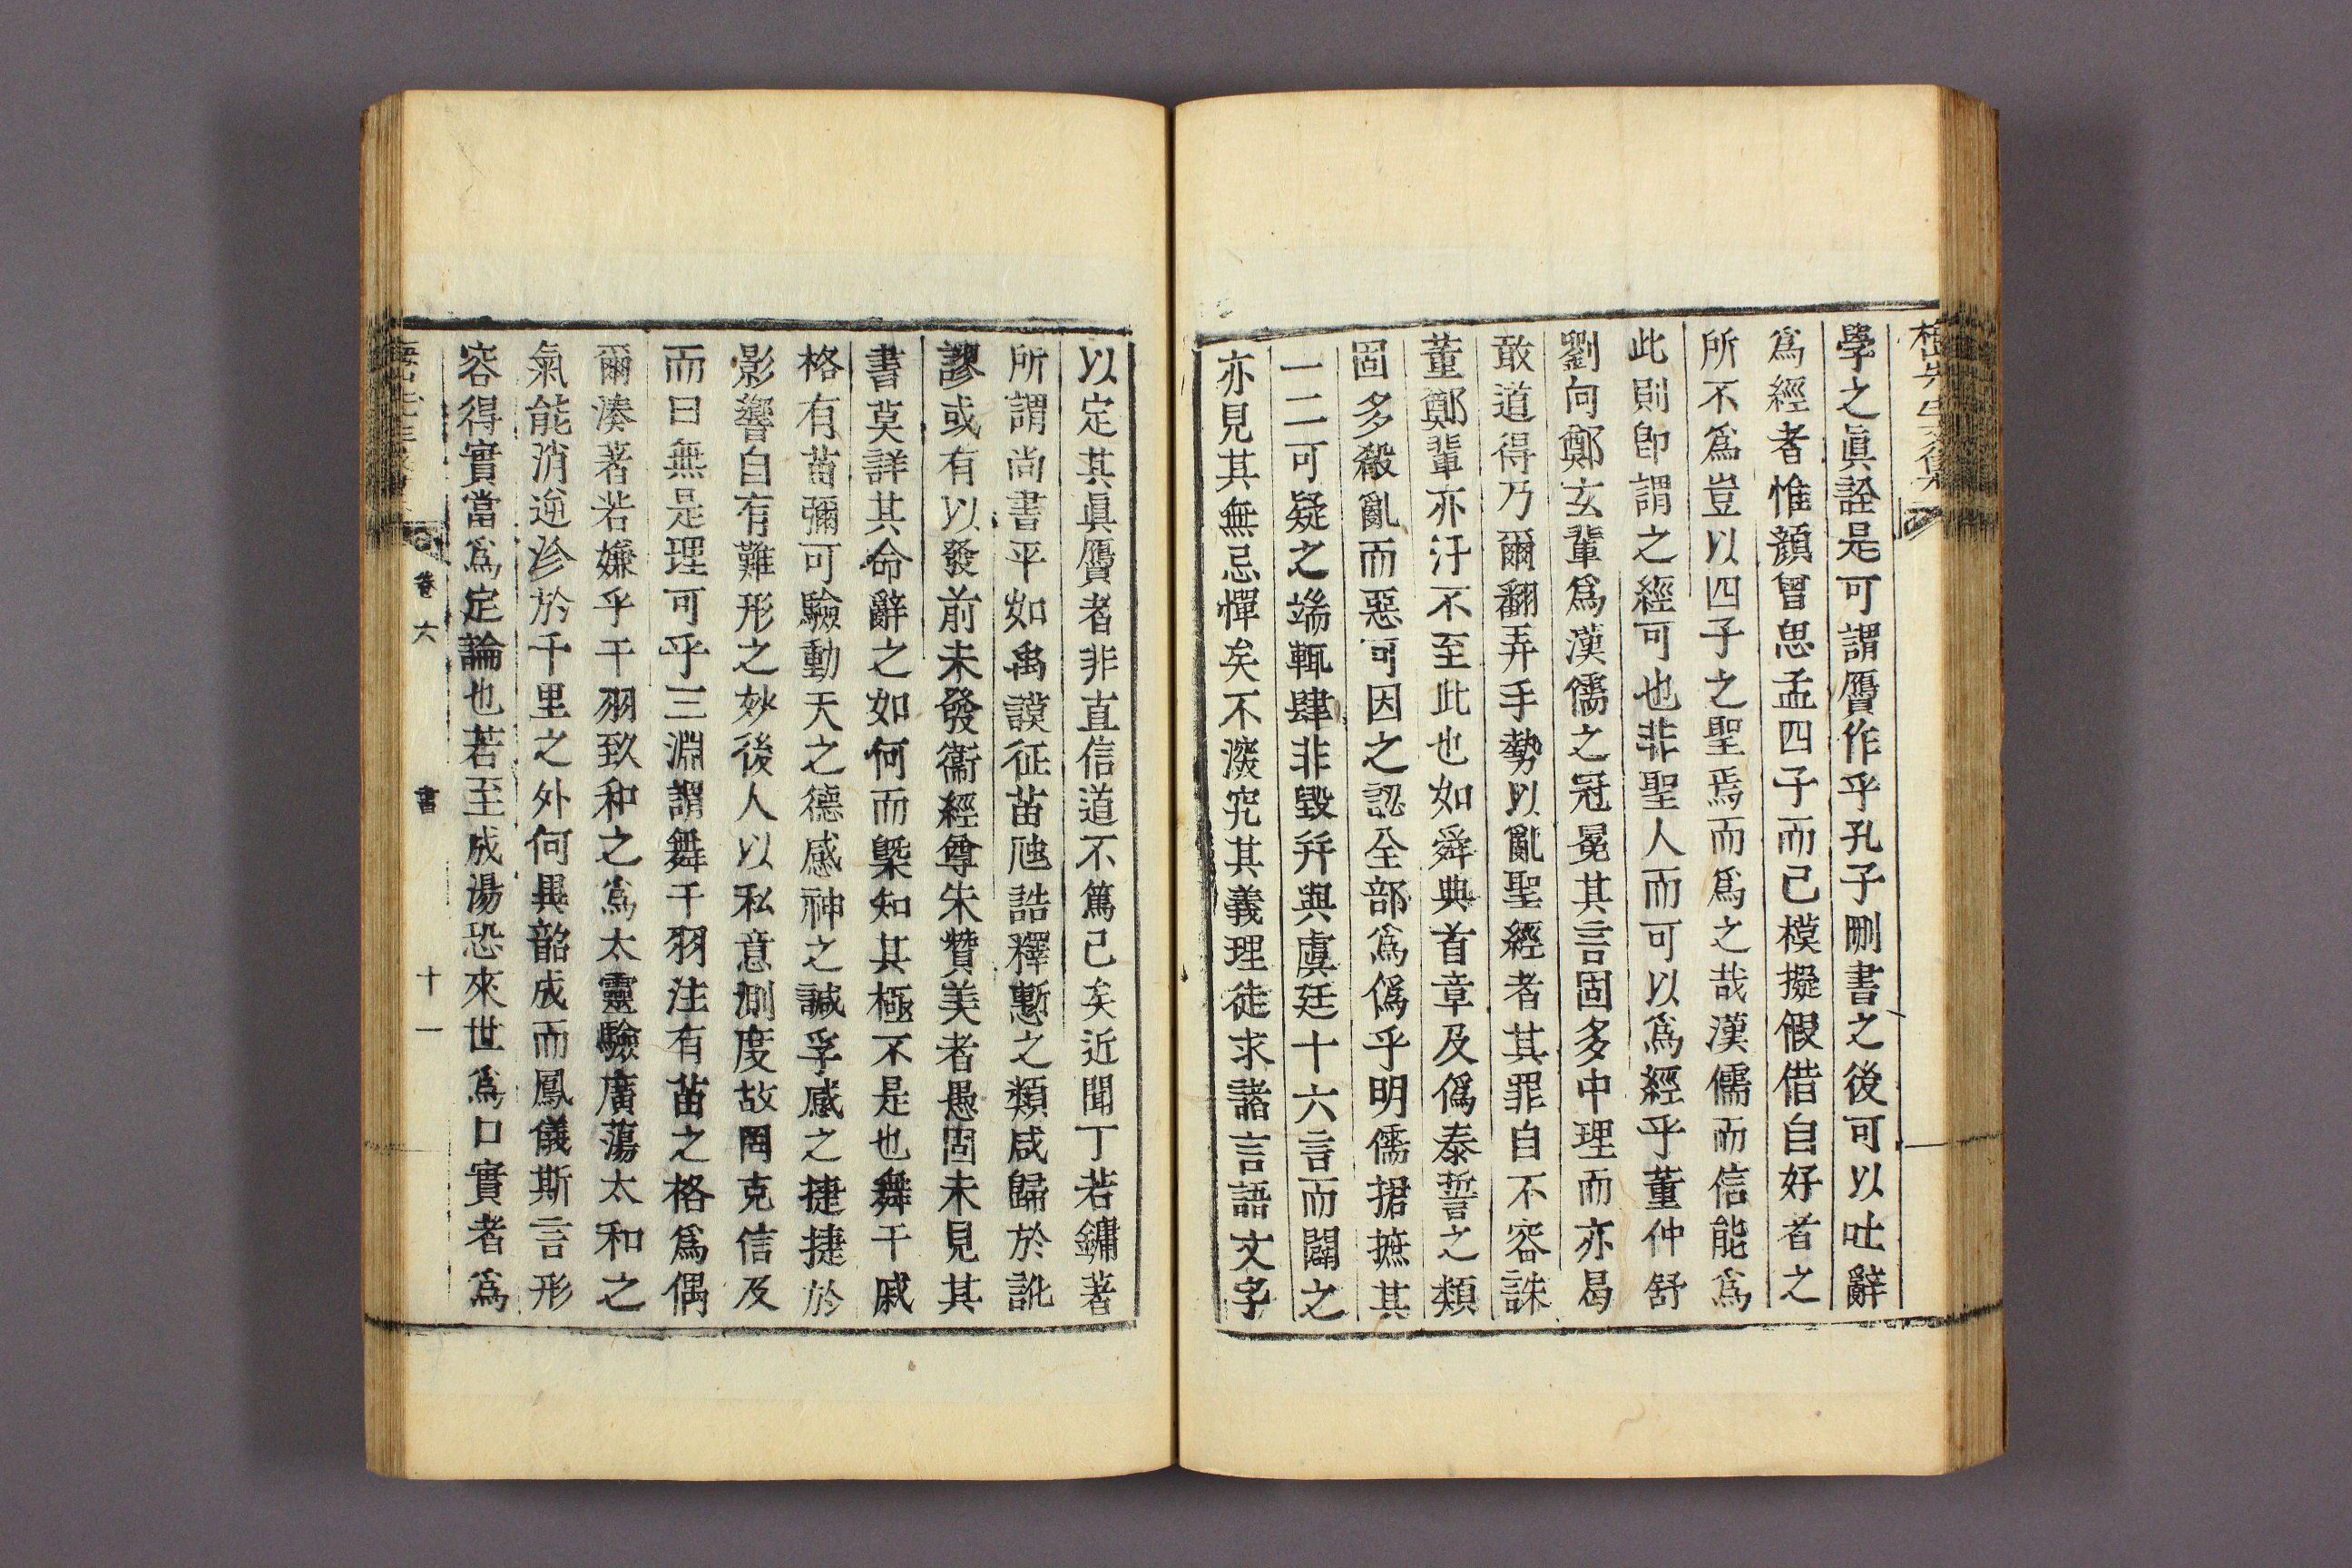 學之眞詮是可謂贋作乎孔子刪書之後可以吐辭
爲經者惟顔曾思孟四子而已模擬假借自好者之
所不爲豈以四子之聖焉而爲之哉漢儒而信能爲
此則卽謂之經可也非聖人而可以爲經乎董仲舒
劉向鄭玄輩爲漢儒之冠冕其言固多中理而亦曷
敢道得乃爾翻弄手勢以亂聖經者其罪自不容誅
董鄭輩亦汙不至此也如舜典首章及僞泰誓之類
固多殽亂而惡可因之認全部爲僞乎明儒捃摭其
一二可疑之端輒肆非毁幷與虞廷十六言而闢之
亦見其無忌憚矣不深究其義理徒求諸言語文字
以定其眞贋者非直信道不篤已矣近聞丁若鏞著
所謂尚書平如禹謨征苗虺誥釋慙之類咸歸於訛
謬或有以發前未發衞經尊朱贊美者愚固未見其
書莫詳其命辭之如何而槩知其極不是也舞干戚
格有苗彌可驗動天之德感神之諴孚感之捷捷於
影響自有難形之妙後人以私意測度故罔克信及
而曰無是理可乎三淵謂舞干羽注有苗之格爲偶
爾湊著若嫌乎干羽致和之爲太靈驗廣蕩太和之
氣能消逆沴於千里之外何異韶成而鳳儀斯言形
容得實當爲定論也若至成湯恐來世爲口實者爲
卷六
書
十一